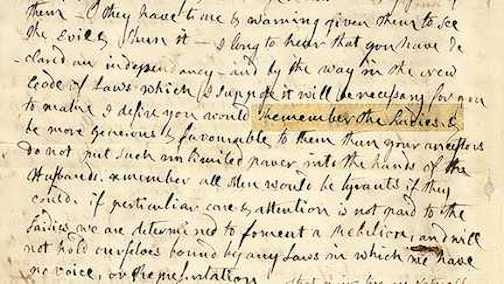 them — if they have time & warning given them to see
the Evil & shun it — I long to hear that you have de
clared an independancy — and by the way in the new
Code of Laws which I suppose it will be necessary for you
to make I desire you would Remember the Ladies, &
be more generous & favourable to them than your ancestors
do not put such unlimited power into the hands of the
Husbands. remember all Men would be tyrants if they
could. if perticuliar care & attention is not paid to the
Ladies we are determined to foment a Rebelion, and will
not hold ourselves bound by any Laws in which we have
no voice, or Representation
that your